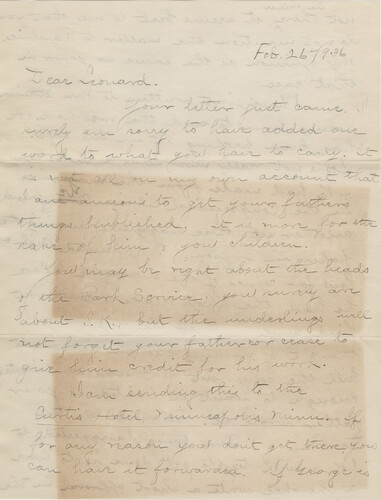 Feb. 26 1936
Dear Leonard.
Your letter just came. I
surely am sorry to hair added one
word to what you hair to carry. it
is not all on my own account that
I am anxious to get your fathers
things published, it is more for the
sake of him & you children.
You may be right about the heads
of the Park Service. you surly are
about J.K. but the underlings will
not forget your father or cease to
give him credit for his work.
I am sending this to the
Curtis Hotel Minneapolis Minn. If
for any reason you don't get there you
can hair it forwarded. If George is